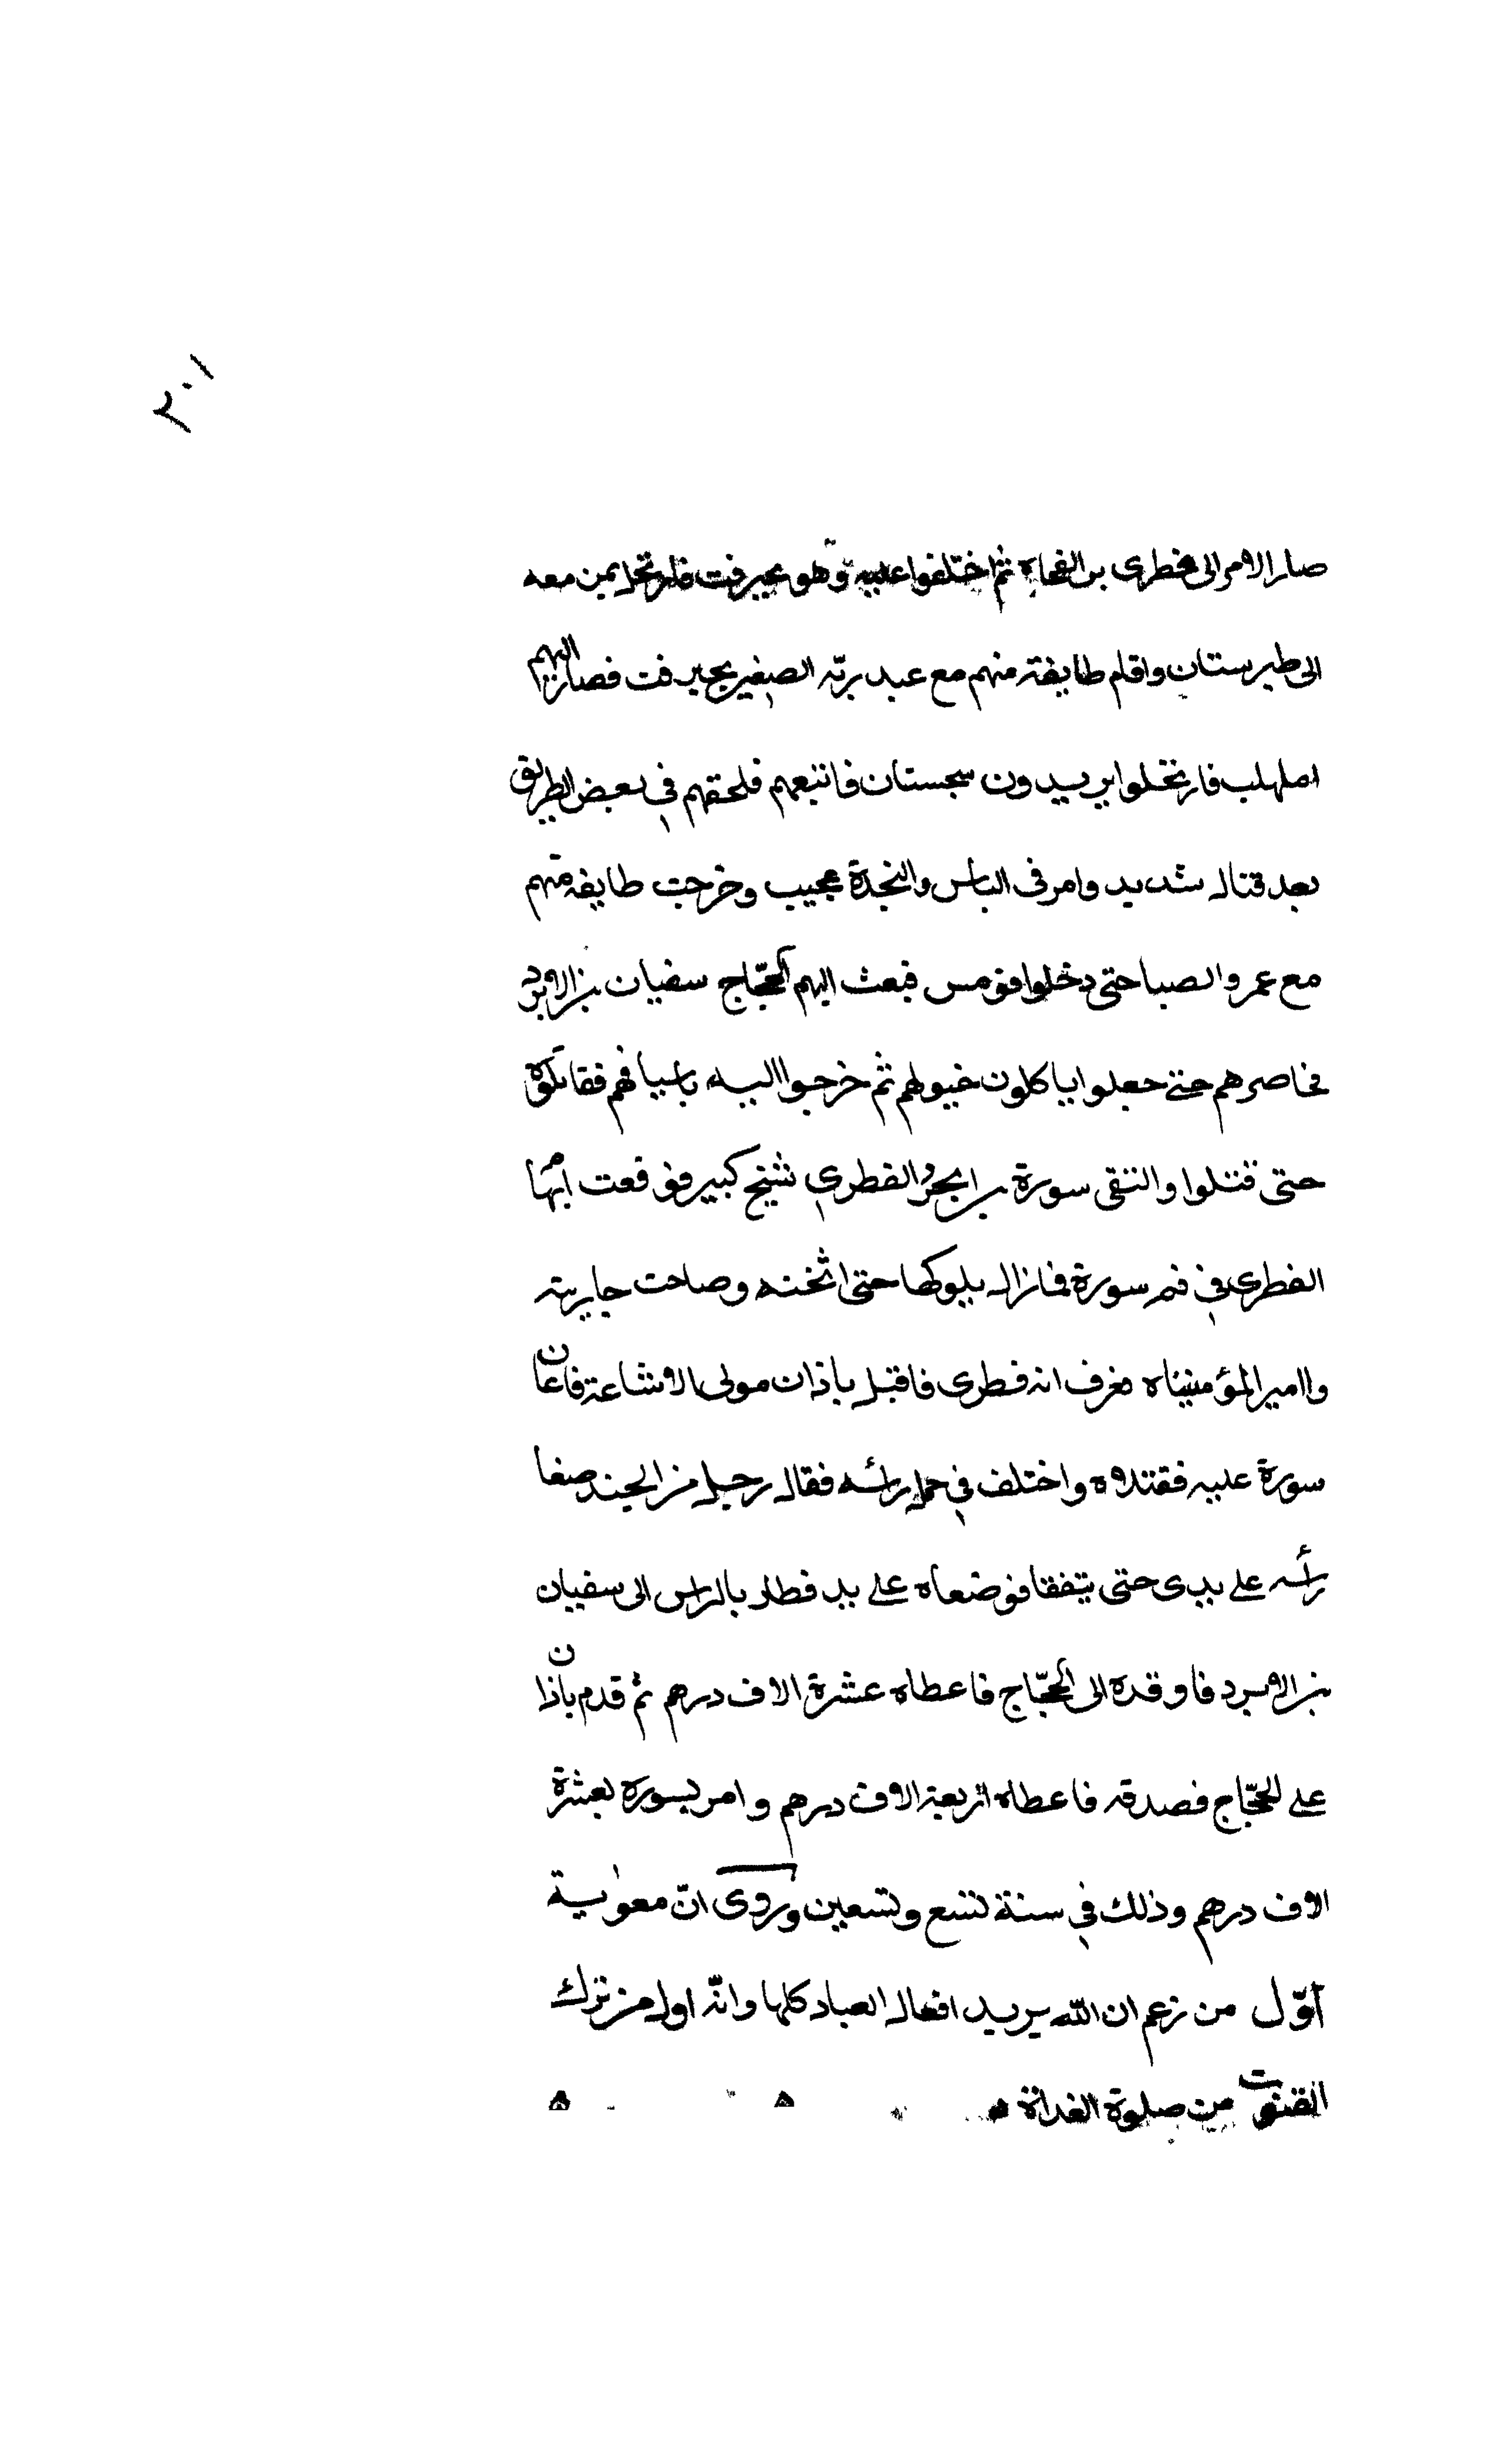 ٢٠١
صار الامر الى قطرى بن الفجاه ثم اختلفوا عليه وهو بجيرفت فارتحل بمن معه
الى طبرستان واقام طايفة منهم مع عبد ربّه الصغير بجيرفت فصار اليهم
املهلب فارتحلوا يريدون سجستان فاتبعهم فلحقهم في بعض الطريق
بعد قتال شديد وامر فى الباس والنجدة عجيب وخرجت طايفة منهم
مع عمرو الصبا حتى دخلوا قومس فبعث اليهم الحجّاج سفيان بن الابرد
فحاصرهم حتى جعلوا ياكلون خيولهم ثم خرجوا اليه باسيافهم فقاتلوه
حتى قتلوا والتقى سورة بن ابجر والقطري شيخ كبير فوقعت ابهام
القطرى في فم سورة فمازال يلوكها حتى اثخنه وصاحت جاريته
واامير المؤمنيناه فعرف انه قطرى فاقبل باذان مولى الاشاعثة فاعان
سورة عليه فقتلاه واختلف في حمل رأسه فقال رجل من الجند ضعا
رأسه على يدى حتى يتفقا فوضعاه على يد فطار بالراس الى سفيان
بن الابرد فاوفده الى الحجّاج فاعطاه عشرة الاف درهم ثم قدم باذان
على الحجّاج فصدقه فاعطاه اربعة الاف درهم وامر لسوره بعشرة
الاف درهم وذلك في سنة تسع وتسعين وروى انّ معوية
اوّل من زعم ان الله يريد افعال العباد كلها وانّه اول من ترك
القنوت من صلوة الغداة